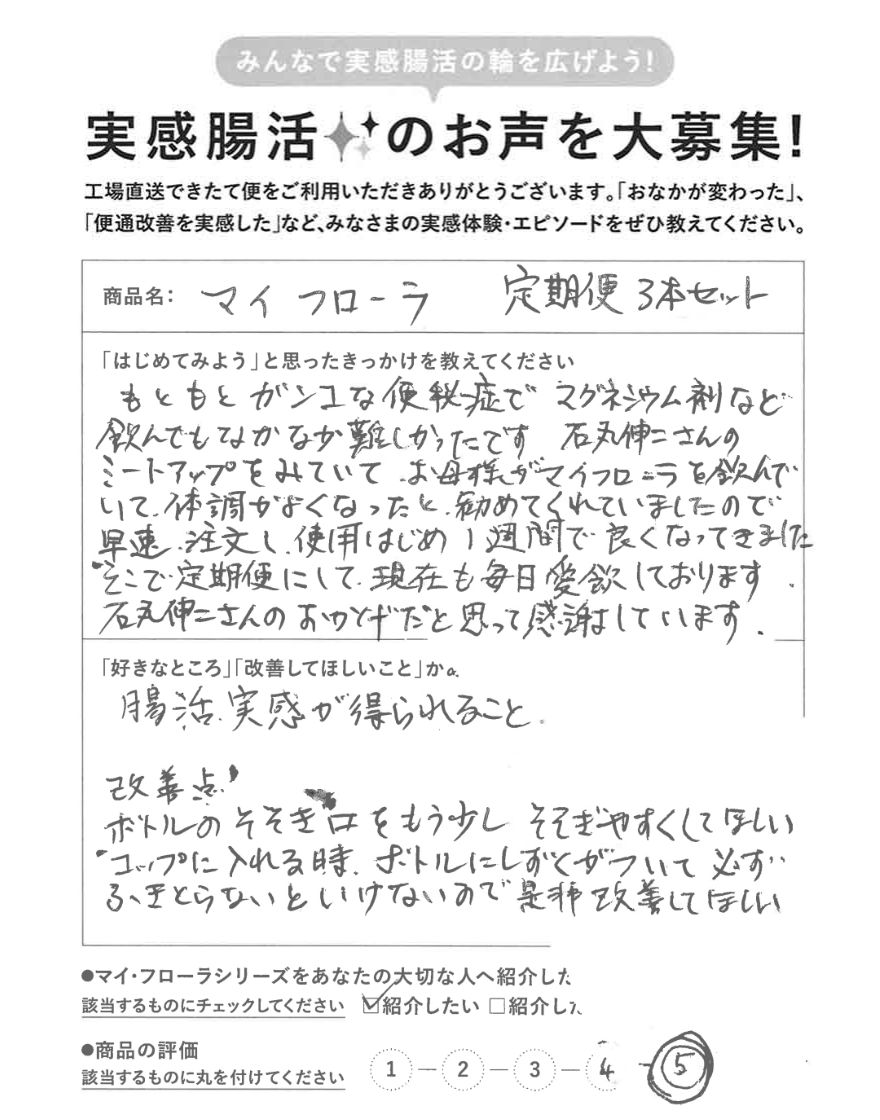 みんなで実感腸活の輪を広げよう!
実感腸活のお声を大募集!
工場直送できたて便をご利用いただきありがとうございます。「おなかが変わった」、
「便通改善を実感した」など、みなさまの実感体験・エピソードをぜひ教えてください。
商品名: マイフローラ 定期便 3本セット
「はじめてみよう」と思ったきっかけを教えてください
もともとガンコな便秘症で マグネシウム剤など
飲んでもなかなか難しかったです 石丸伸二さんの
ミートアップをみていて、お母様がマイフローラを飲んで
いて、体調がよくなったと、勧めてくれていましたので
早速、注文し、使用はじめ1週間で良くなってきました
そこで定期便にして、現在も毎日愛飲しております.
石丸伸二さんのおかげだと思って感謝しています.
「好きなところ」「改善してほしいこと」か
腸活、実感が得られること.
改善点
ボトルのそそぎ口をもう少し そそぎやすくしてほしい
コップに入れる時、ボトルにしずくがついて 必ず
ふきとらないといけないので 是非改善してほしい
●マイ・フローラシリーズをあなたの大切な人へ紹介した
該当するものにチェックしてください ☑紹介したい □紹介し
●商品の評価
該当するものに丸を付けてください 1 - 2 - 3 - 4 - 5